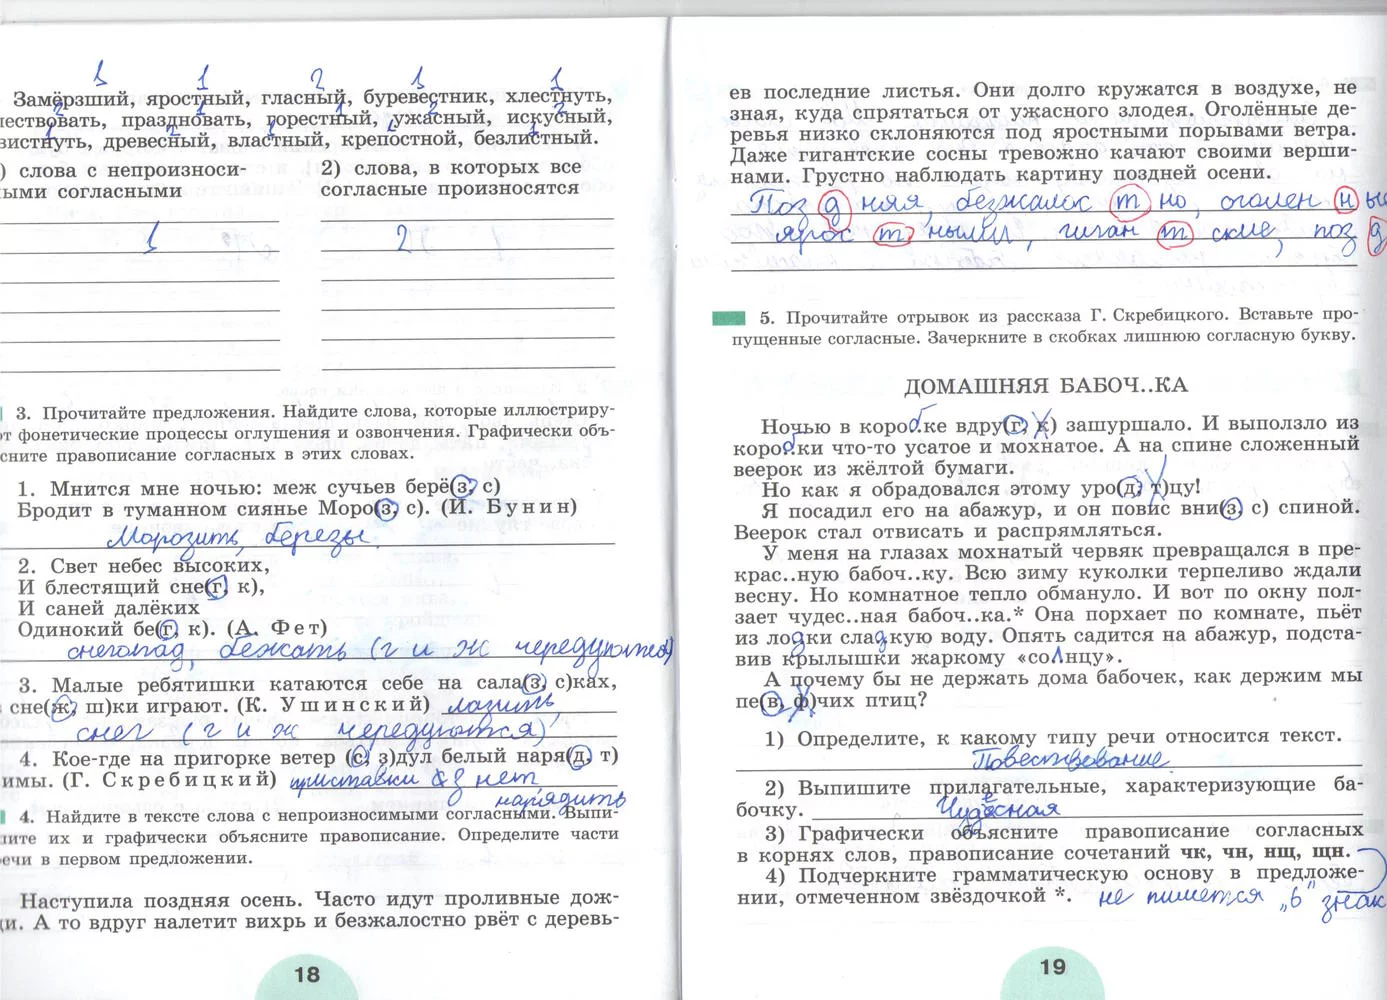 1 1 2 1 1
Замёрзший, яростный, гласный, буревестник, хлестнуть,
2 1 1 2 2
шествовать, праздновать, горестный, ужасный, искусный,
1 2 1 2 1
свистнуть, древесный, властный, крепостной, безлистный.
) слова с непроизноси-
ыми согласными
2) слова, в которых все
согласные произносятся
1
2
3. Прочитайте предложения. Найдите слова, которые иллюстриру-
от фонетические процессы оглушения и озвончения. Графически объ-
сните правописание согласных в этих словах.
1. Мнится мне ночью: меж сучьев берё(з, с)
Бродит в туманном сиянье Моро(з, с). (И. Бунин)
Морозить, березы.
2. Свет небес высоких,
И блестящий сне(г, к),
И саней далёких
Одинокий бе(г, к). (А. Фет)
снегопад, бежать (г и ж чередуются)
3. Малые ребятишки катаются себе на сала(з, с)ках,
сне(ж, ш)ки играют. (К. Ушинский) лазить,
снег (г и ж чередуются)
4. Кое-где на пригорке ветер (с, з)дул белый наря(д, т)
имы. (Г. Скребицкий) приставки з нет
нарядить
4. Найдите в тексте слова с непроизносимыми согласными. Выпи-
ите их и графически объясните правописание. Определите части
ечи в первом предложении.
Наступила поздняя осень. Часто идут проливные дож-
и. А то вдруг налетит вихрь и безжалостно рвёт с деревь-
18
ев последние листья. Они долго кружатся в воздухе, не
зная, куда спрятаться от ужасного злодея. Оголённые де-
ревья низко склоняются под яростными порывами ветра.
Даже гигантские сосны тревожно качают своими верши-
нами. Грустно наблюдать картину поздней осени.
Поздняя, безжалостно, оголенные
яростными, гигантские, позд
5. Прочитайте отрывок из рассказа Г. Скребицкого. Вставьте про-
пущенные согласные. Зачеркните в скобках лишнюю согласную букву.
ДОМАШНЯЯ БАБОЧ..КА
Ночью в коробке вдру(г, к) зашуршало. И выползло из
коробки что-то усатое и мохнатое. А на спине сложенный
веерок из жёлтой бумаги.
Но как я обрадовался этому уро(д, т)цу!
Я посадил его на абажур, и он повис вни(з, с) спиной.
Веерок стал отвисать и распрямляться.
У меня на глазах мохнатый червяк превращался в пре-
крас..ную бабоч..ку. Всю зиму куколки терпеливо ждали
весну. Но комнатное тепло обмануло. И вот по окну пол-
зает чудес..ная бабоч..ка.* Она порхает по комнате, пьёт
из лодки сладкую воду. Опять садится на абажур, подста-
вив крылышки жаркому «солнцу».
А почему бы не держать дома бабочек, как держим мы
пе(в, ф)чих птиц?
1) Определите, к какому типу речи относится текст.
Повествование
2) Выпишите прилагательные, характеризующие ба-
бочку. Чудесная
3) Графически объясните правописание согласных
в корнях слов, правописание сочетаний чк, чн, нщ, щн.
4) Подчеркните грамматическую основу в предложе-
нии, отмеченном звёздочкой *. не пишется „ь" знак
19